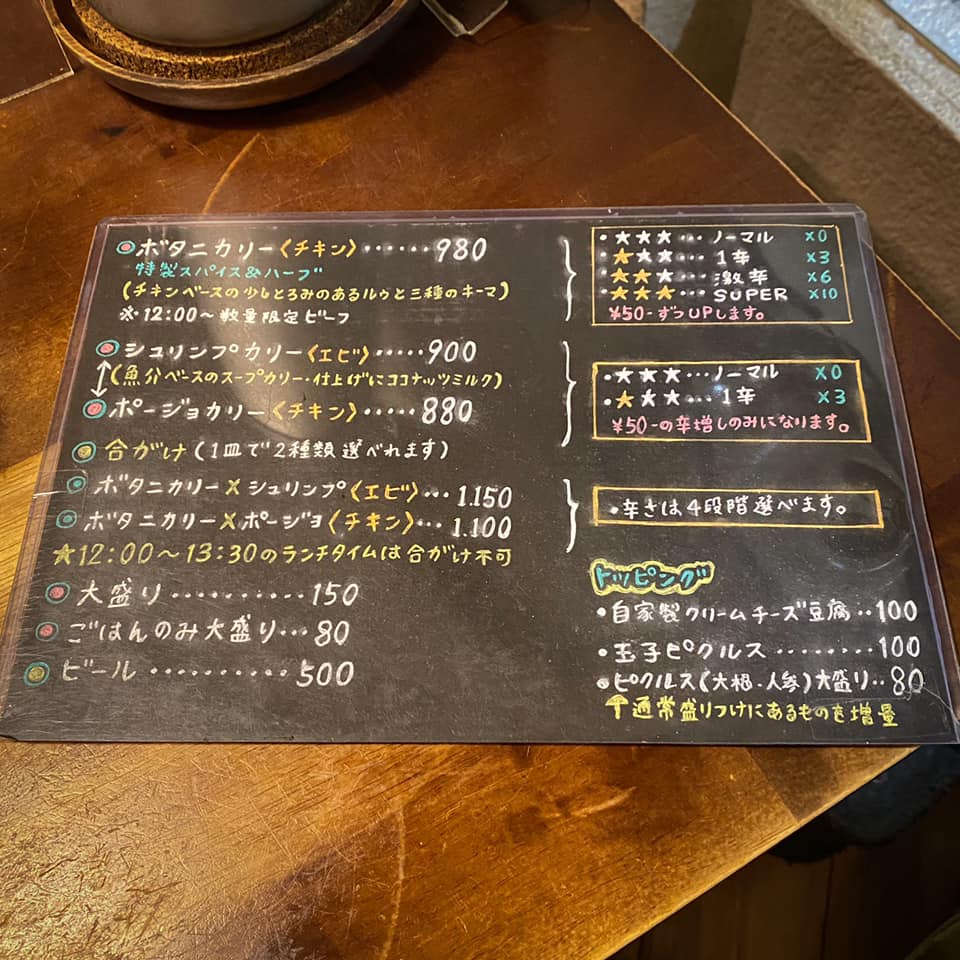 ボタニカリー〈チキン〉……980
特製スパイス&ハーブ
(チキンベースの少しとろみのあるルゥと三種のキーマ)
※・12:00〜数量限定ビーフ
シュリンプカリー〈エビ〉……900
(魚介ベースのスープカリー・仕上げにココナッツミルク)
ポージョカリー〈チキン〉……880
合がけ(1皿で2種類選べれます)
ボタニカリー×シュリンプ〈エビ〉…1.150
ボタニカリー×ポージョ〈チキン〉…1.100
★12:00〜13:30のランチタイムは合がけ不可
大盛り..........150
ごはんのみ大盛り…80
ビール..........500
・★★★…ノーマル ×0
・★★★…1辛 ×3
・★★★…激辛 ×6
・★★★…SUPER ×10
¥50-ずつUPします。
・★★★…ノーマル ×0
・★★★…1辛 ×3
¥50-の辛増しのみになります。
・辛さは4段階選べます。
トッピング
・自家製クリームチーズ豆腐..100
・玉子ピクルス........100
・ピクルス(大根・人参)大盛り..80
↑通常盛りつけにあるものを増量